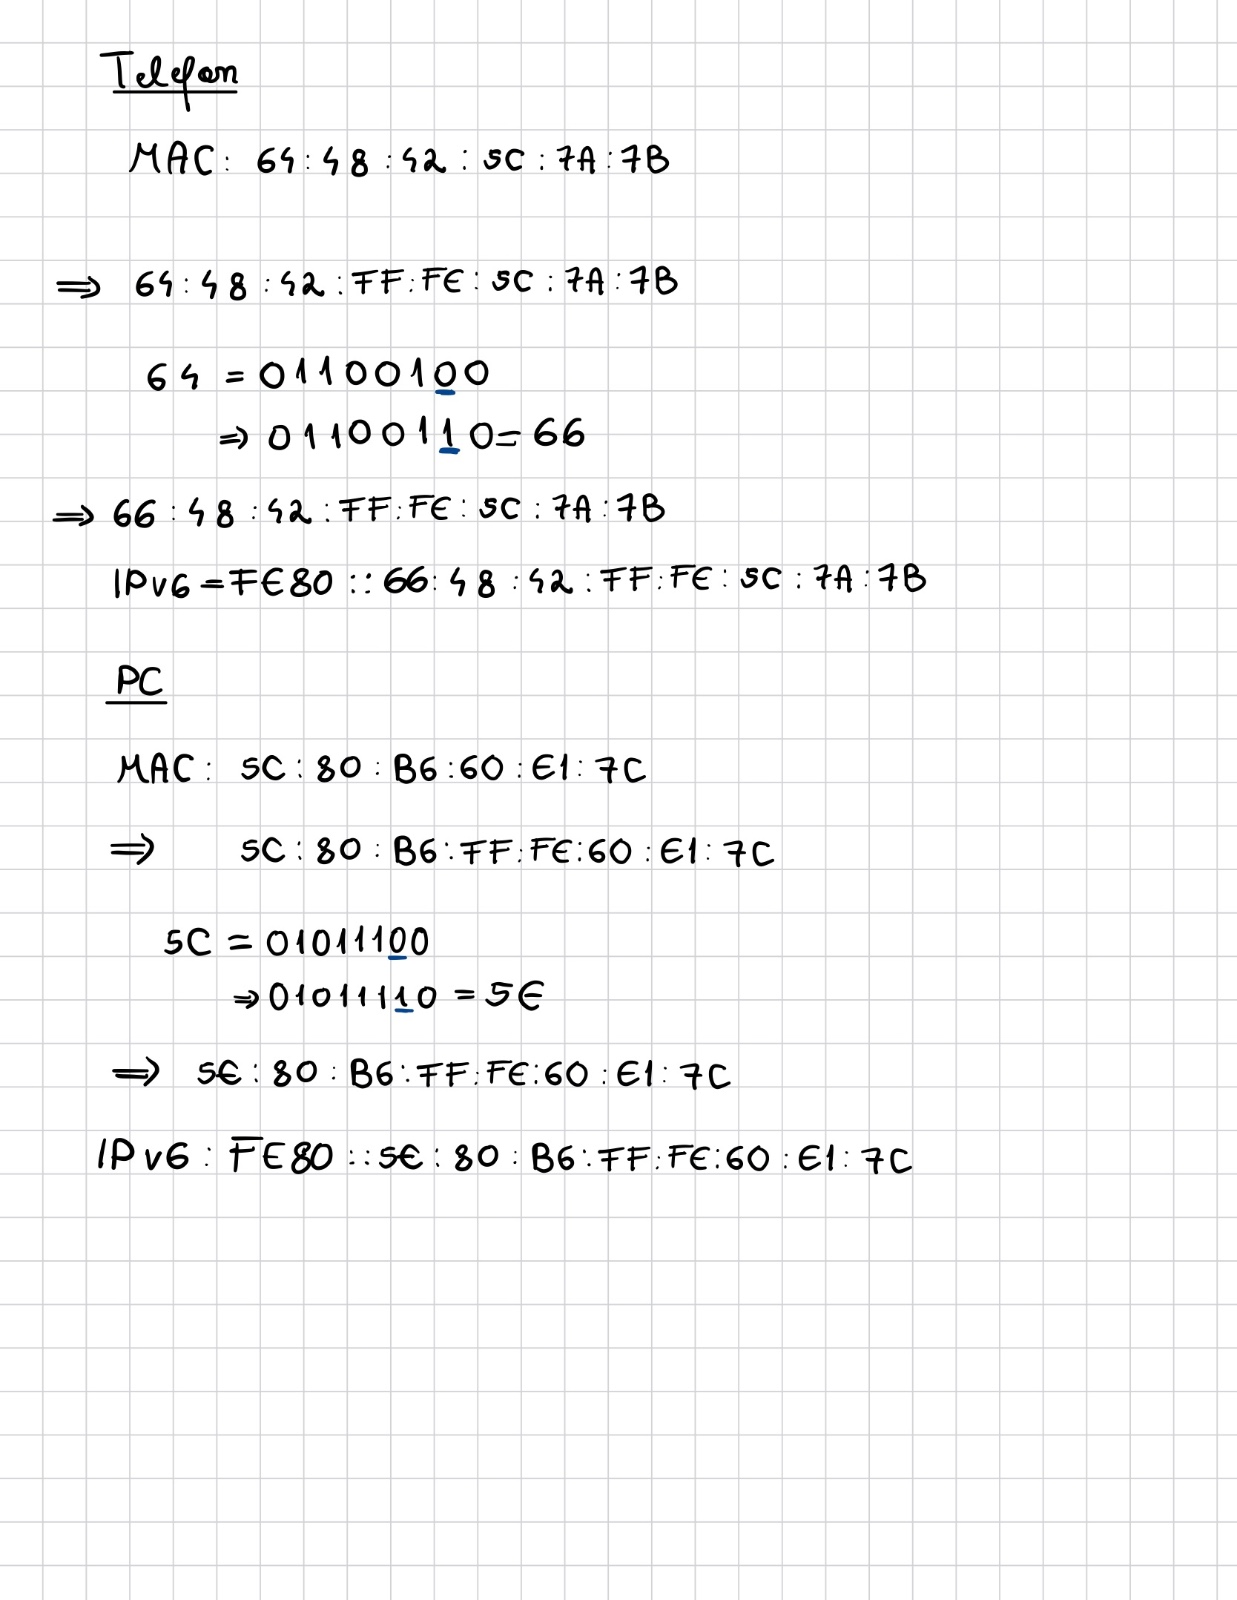 Telefon
MAC: 64:48:42:5C:7A:7B
⇒ 64:48:42:FF:FE:5C:7A:7B
64 = 01100100
⇒ 01100110 = 66
⇒ 66:48:42:FF:FE:5C:7A:7B
IPv6 = FE80::66:48:42:FF:FE:5C:7A:7B
PC
MAC: 5C:80:B6:60:E1:7C
⇒ 5C:80:B6:FF:FE:60:E1:7C
5C = 01011100
⇒ 01011110 = 5E
⇒ 5E:80:B6:FF:FE:60:E1:7C
IPv6: FE80::5E:80:B6:FF:FE:60:E1:7C